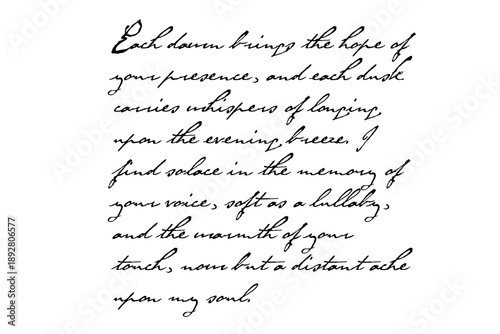 Each dawn brings the hope of
your presence, and each dusk
carries whispers of longing
upon the evening breeze. I
find solace in the memory of
your voice, soft as a lullaby,
and the warmth of your
touch, now but a distant ache
upon my soul.
Adobe Stock | #1892806577